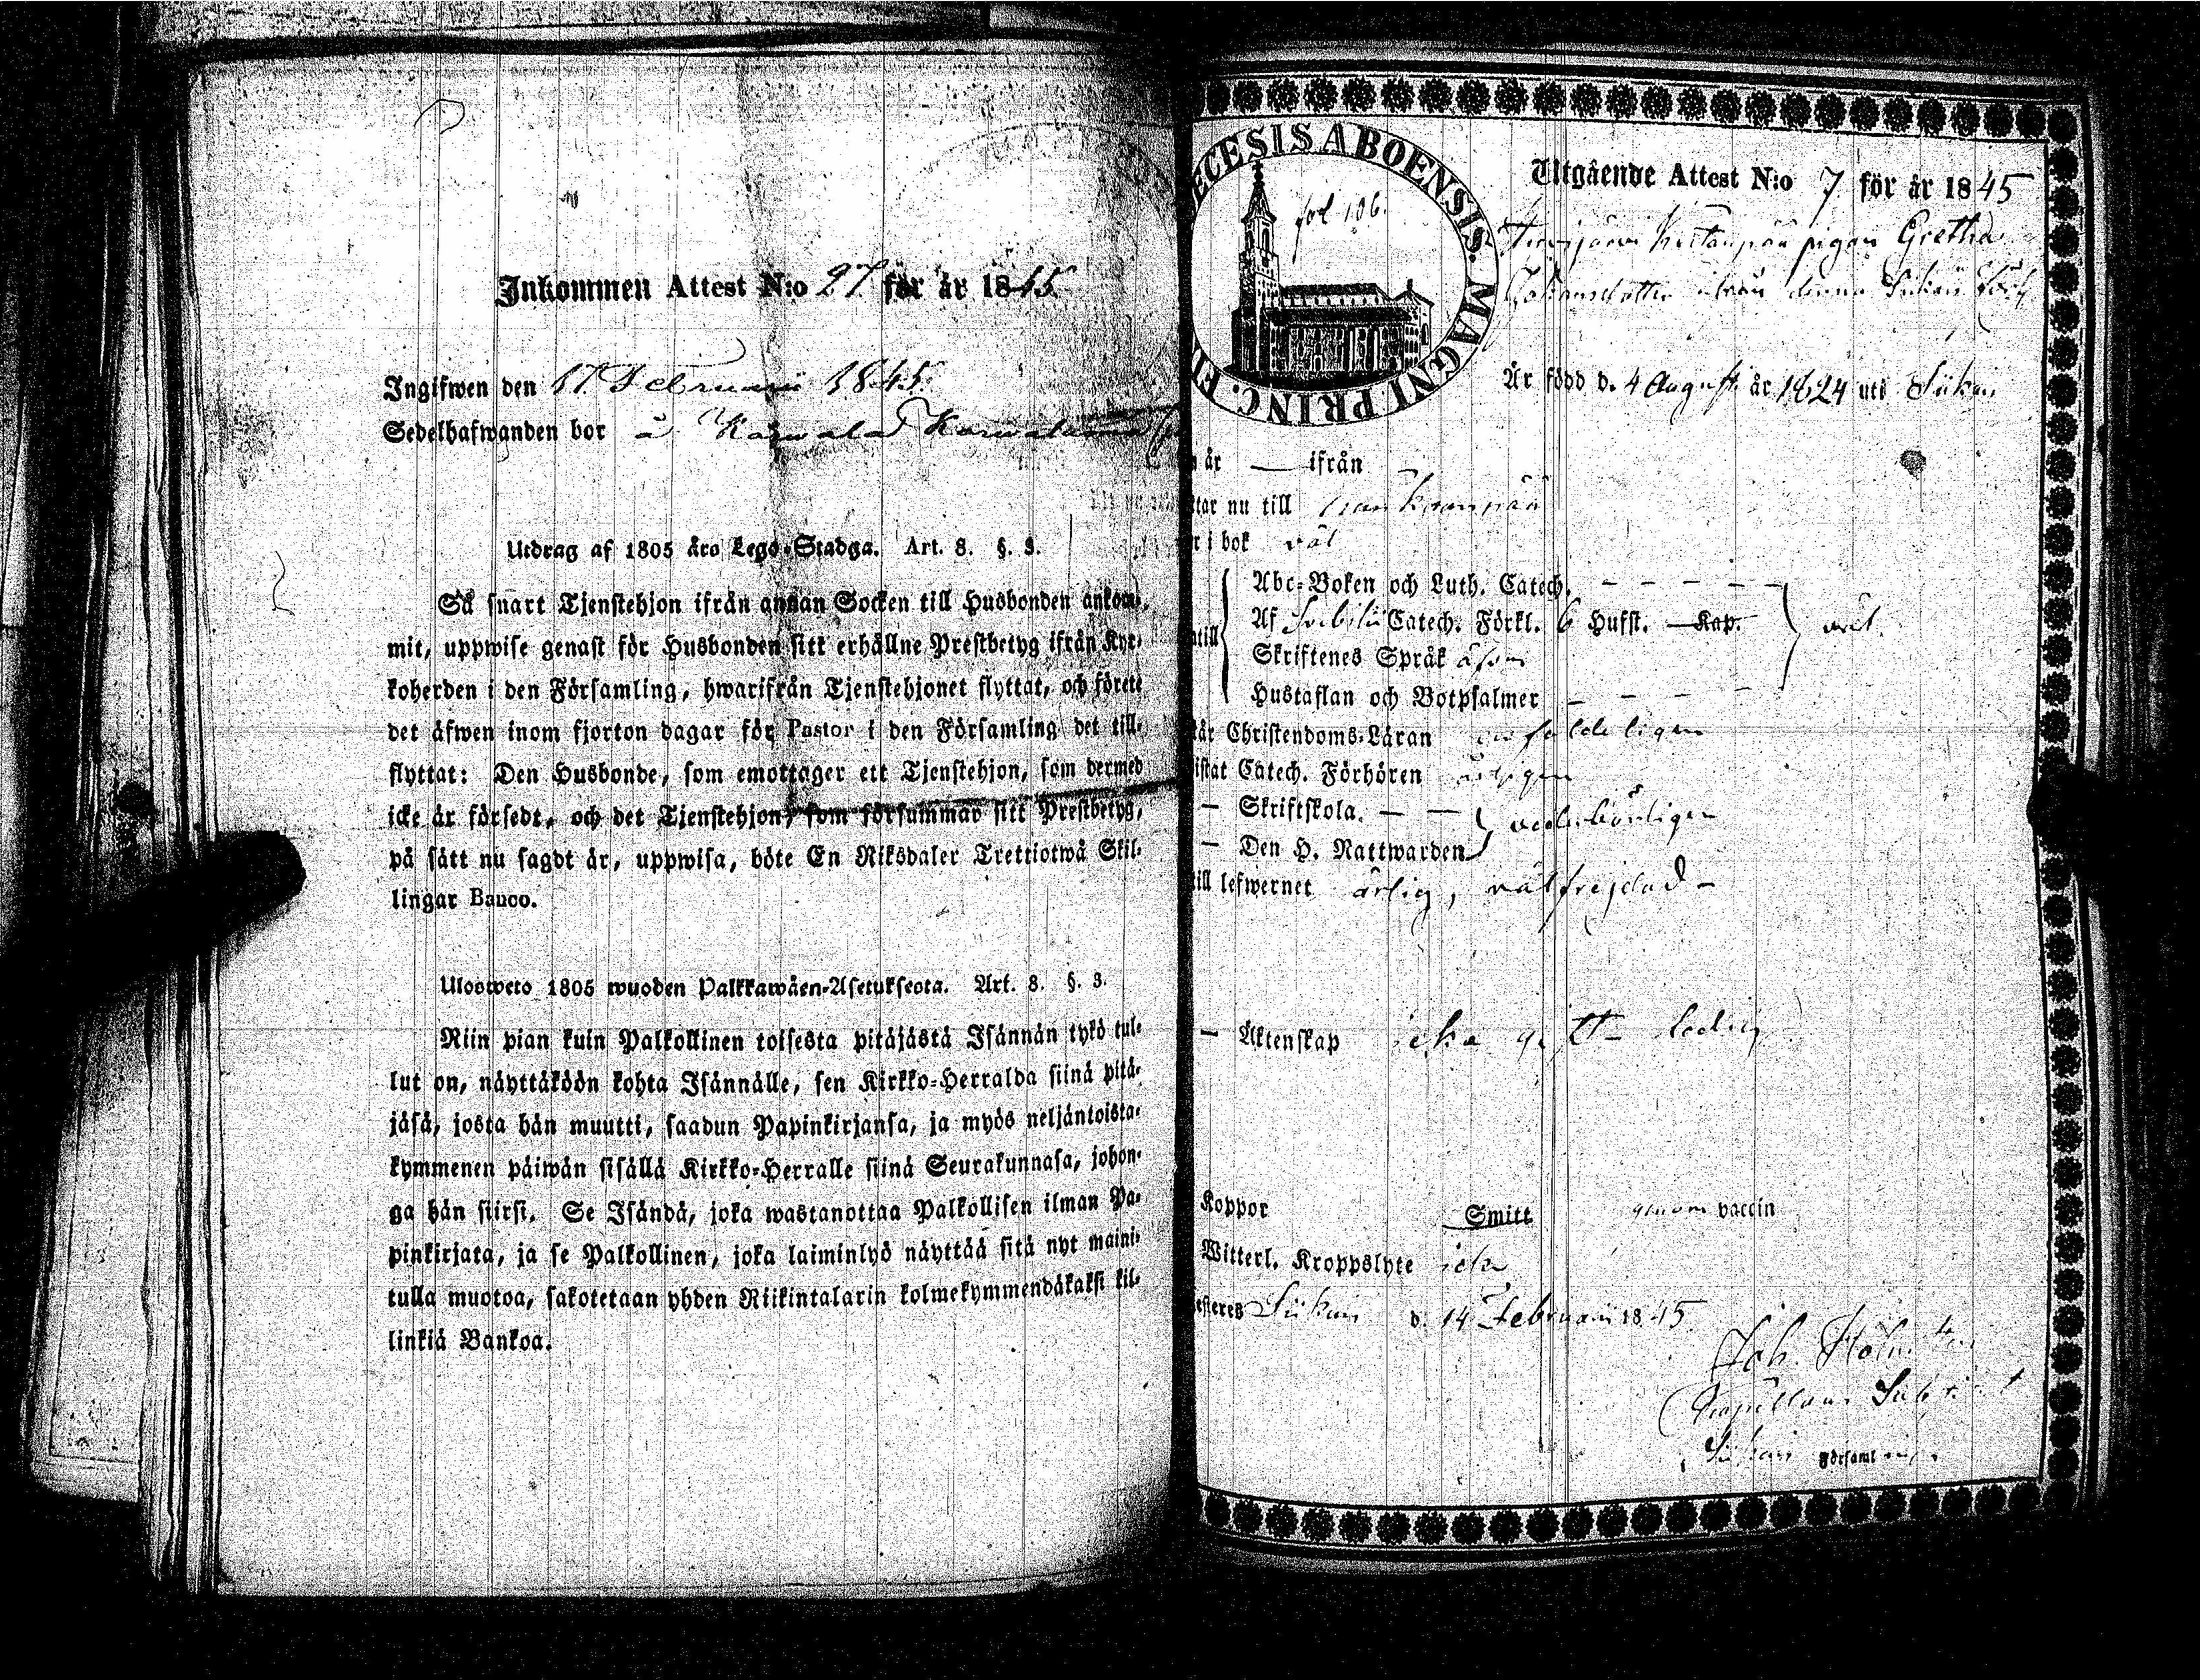 Inkommen Attest N:o 27 för år 1845.
Ingifwen den 17 Februarii 1845.
Sedelhafwanden bor å Karwala
Utdrag af 1805 års Lego-Stadga. Art. 8. §. 3.
Så snart Tjenstehjon ifrån annan Socken till Husbonden ankom-
mit, uppwise genast för Husbonden sitt erhållne Prestbetyg ifrån Kyr-
koherden i den Församling, hwarifrån Tjenstehjonet flyttat, och förete
det äfwen inom fjorton dagar för Pastor i den Församling det till-
flyttat: Den Husbonde, som emottager ett Tjenstehjon, som dermed
icke är försedt, och det Tjenstehjon, som försummar sitt Prestbetyg,
på sätt nu sagdt är, uppwisa, böte En Riksdaler Trettiotwå Skil-
lingar Banco.
Ulosweto 1805 wuoden Palkkawäen-Asetuksesta. Art. 8. §. 3.
Niin pian kuin Palkollinen toisesta pitäjästä Isännän tykö tul-
lut on, näyttäköön kohta Isännälle, sen Kirkko-Herralda siinä pitä-
jäsä, josta hän muutti, saadun Papinkirjansa, ja myös neljäntoista-
kymmenen päiwän sisällä Kirkko-Herralle siinä Seurakunnasa, johon-
ga hän siirsi. Se Isändä, joka wastanottaa Palkollisen ilman Pa-
pinkirjata, ja se Palkollinen, joka laiminlyö näyttää sitä nyt maini-
tulla muotoa, sakotetaan yhden Riikintalarin kolmekymmendäkaksi kil-
linkiä Bankoa.
ECESIS ABOENSIS. MAGNI PRINC. FI
fol 106.
Utgående Attest N:o 7 för år 1845
pigan Gretha
Johansdotter ifrån denna
Är född d. 4 Augusti år 1824 uti Siikais
år — ifrån
tar nu till Kankaanpää
r i bok väl
till
Abc-Boken och Luth. Catech. — — — —
Af Svebilii Catech. Förkl. 6 Hufst. —Kap.
Skriftenes Språk äfven
Hustaflan och Botpsalmer — — — —
väl.
tår Christendoms-Läran enfaldeligen
istat Catech. Förhören
— Skriftskola. — —
— Den H. Nattwarden
vederbörligen
ill lefwernet ärlig, välfrejdad —
— Äktenskap icke gift — ledig
Koppor Smitt genom vaccin
Witterl. Kroppslyte icke
esteres Siikais d. 14 Februarii 1845
Joh.
Capellan
Siikais Församling